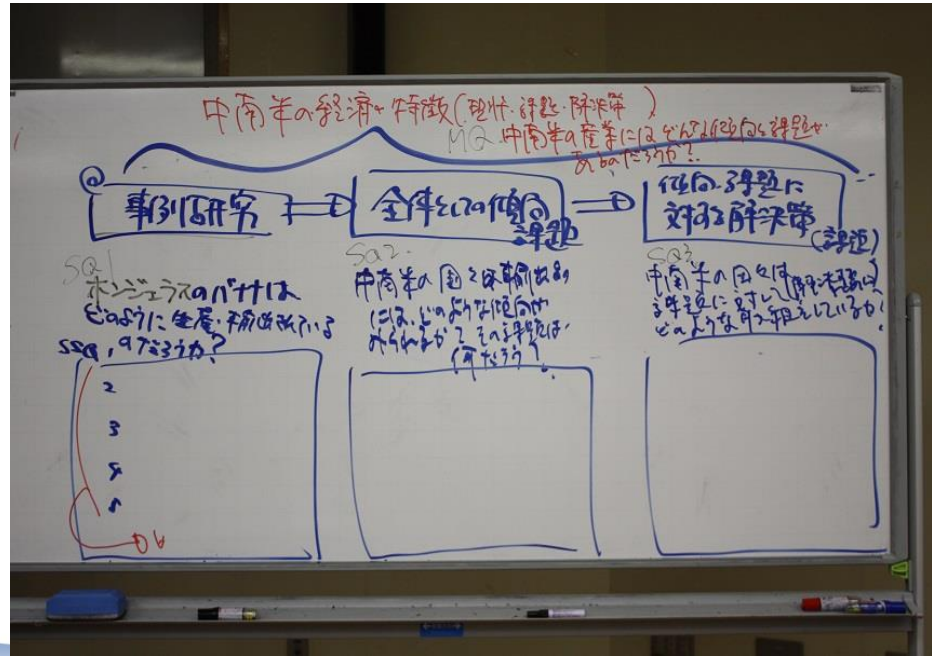 中南米の経済の特徴(現状・課題・解決策)
MQ 中南米の産業にはどんな傾向と課題が
あるのだろうか?
事例研究
全体としての傾向
課題
傾向・課題に
対する解決策
(課題)
SQ1
ホンジュラスのバナナは
どのように生産・輸出されている
のだろうか?
SSQ1
2
3
4
5
6
SQ2
中南米の国々の輸出品
には、どのような傾向が
みられるか?その課題は
何だろう?
SQ3
中南米の国々は
課題に対して(解決策)
どのような取り組みをしているか?